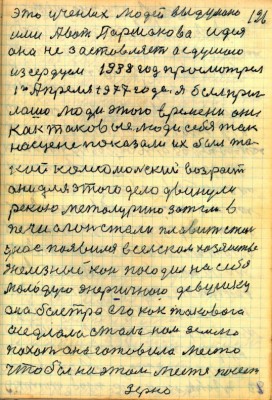 это ученых людей выдумано 126
или Авот Паршакова идея
она не заставляет а слушаю
и сердцем 1938 год просмотрел
1го Апреля 1977 года. я был приг
лашо люди этого времени они
как таковые люди себя так
на сцене показали их был та
кой комсомольский возраст
они для этого дело двинули
рекою металурию затем в
печи агон стали плавит стал
у нас появился в сельском хозяйстве
железный кон посадил на себя
молодую энергичного девушку
она быстро его как такового
оседлала стала нам землю
пахат она готовила место
чтобы на этом месте посеят
Зерно